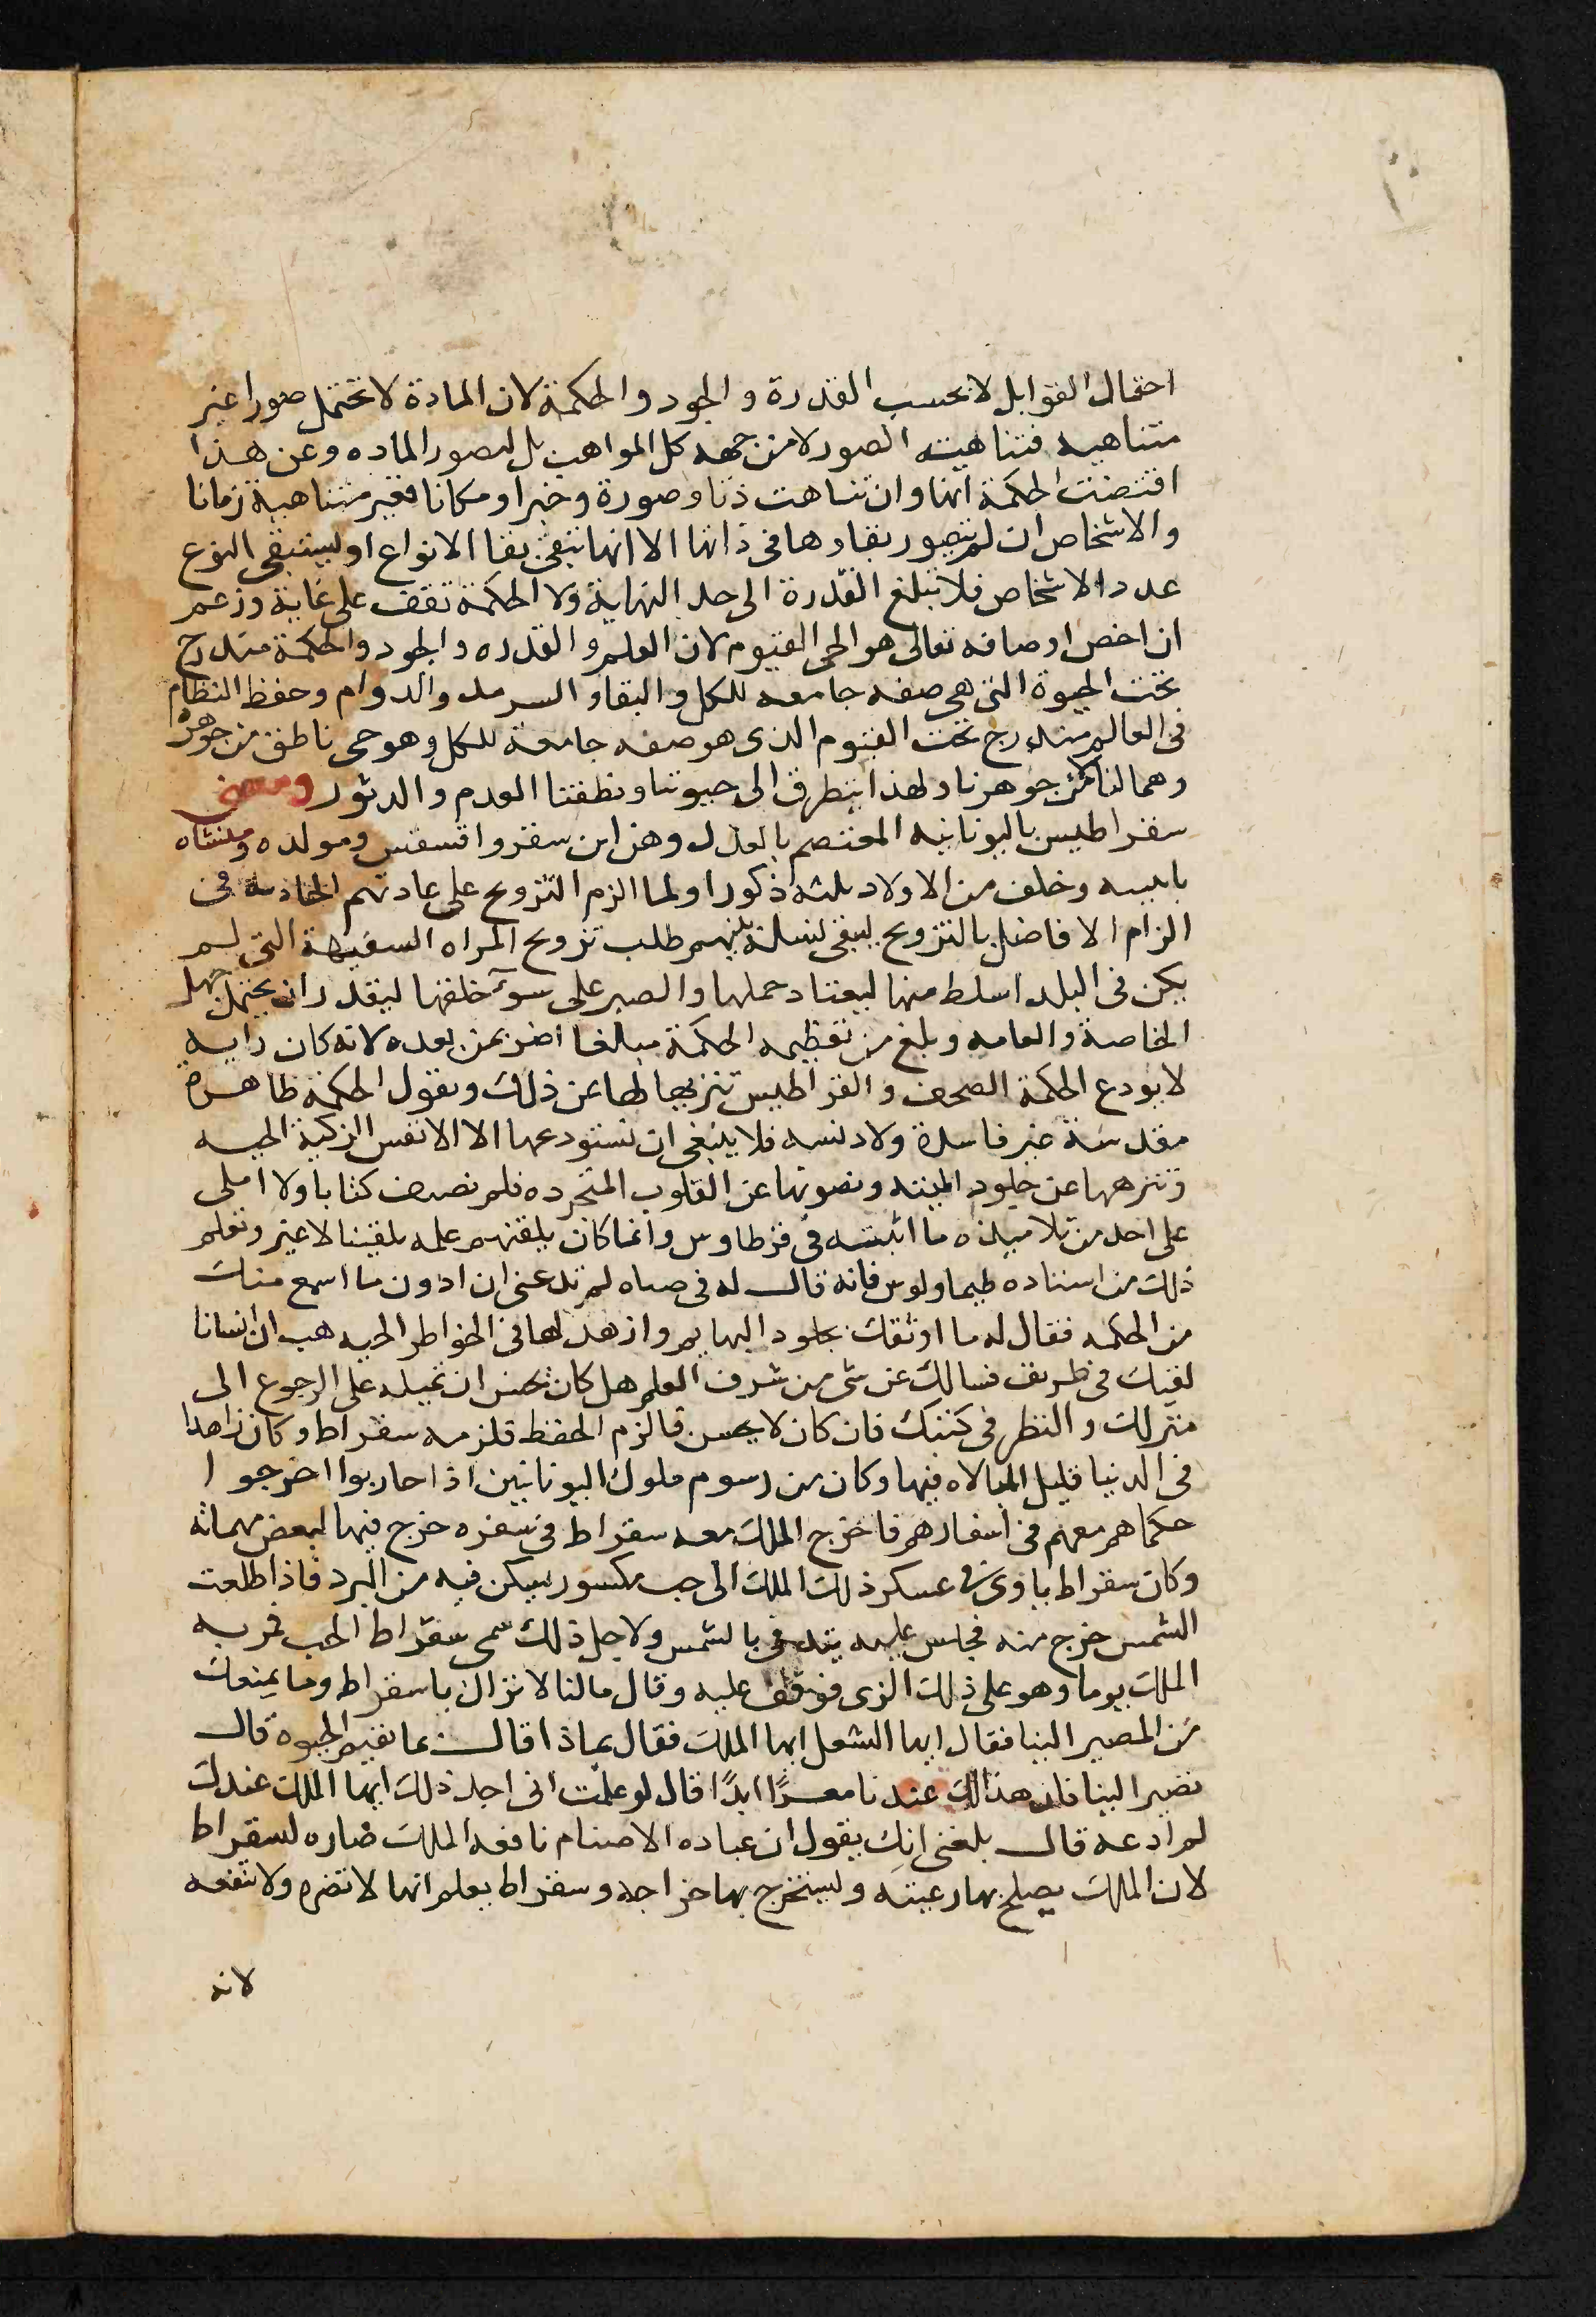 احتمال القوابل لا بحسب القدرة و الجود و الحكمة لان المادة لا تحتمل صورا غير
متناهيه فتناهيت الصور لا من جهه كل المواهب بل لصور الماده وعن هذا
اقتضت الحكمة انها وان تناهت ذتا وصورة وحيزا ومكانا فغير متناهية زمانا
والاشخاص ان لم يتصور بقاوها فى ذاتها الا انها تبقى بقا الانواع او ليستبقى النوع
عدد الاشخاص فلا تبلغ القدرة الى حد النهاية ولا الحكمة تقف على غاية وزعم
ان اخص اوصافه تعالى هو الحى القيوم لان العلم و القدره و الجود والحكمة مندرج
تحت الحيوة التى هى صفه جامعه للكل و البقا و السرمد والدوام وحفظ النظام
فى العالم مندرج تحت القيوم الذى هو صفه جامعة للكل وهو حى ناطق من جوهره
وهما لنا من جوهرنا ولهذا يتطرق الى حيوتنا ونطقنا العدم و الدثور ومعنى
سقراطيس باليونانيه المعتصم بالعدل وهو ابن سقروافسقس ومولده ومنشاه
باثينيه وخلف من الاولاد ثلثه ذكورا ولما الزم التزويج على عادتهم الجاديه فى
الزام الافاضل بالتزويج ليبقى نسله بينهم طلب تزويج المراه السفيهة التى لم
يكن فى البلد اسلط منها ليعتاد حملها والصبر على سوء خلقها ليقدر ان يحتمل جهل
الخاصة والعامه وبلغ من تعظيمه الحكمة مبالغا اضر بمن بعده لانه كان رايه
لا يودع الحكمة الصحف و القراطيس تنزيها لها عن ذلك ويقول الحكمة طاهرة
مقدسة غير فاسدة ولا دنسه فلا ينبغى ان نستودعها الا الانفس الزكية الحيه
وننزهها عن جلود الميته ونصونها عن القلوب المتمرده فلم يصنف كتابا ولا املى
على احد من تلاميذه ما اثبته فى قرطاوس وانما كان يلقنهم علمه تلقينا لا غير وتعلم
ذلك من استاده طيماولوس فانه قال له فى صباه لم تدعنى ان ادون ما اسمع منك
من الحكمه فقال له ما اوثقك بجلود البهايم وازهدك لها فى الخواطر الحيه هب ان انسانا
لقيك فى طريق فسالك عن شى من شرف العلم هل كان يحسن ان تحيله على الرجوع الى
منزلك والنظر فى كتبك فان كان لا يحسن فالزم الحفظ فلزمه سقراط وكان زاهدا
فى الدنيا قليل المبالاه فيها وكان من رسوم ملوك اليونانيين اذا حاربوا اخرجوا
حكماهم معهم فى اسفارهم فاخرج الملك معه سقراط فى سفره خرج فيها لبعض مهماته
وكان سقراط ياوى فى عسكر ذلك الملك الى حب مكسور يسكن فيه من البرد فاذا طلعت
الشمس خرج منه فجلس عليه يتدفى بالشمس ولاجل ذلك سمى سقراط الحب فمر به
الملك يوما وهو على ذلك الزى فوقف عليه وقال مالنا لا نزال يا سقراط وما يمنعك
من المصير الينا فقال ايها الشغل ايها الملك فقال بماذا قال بما يقيم الحيوة قال
نصير الينا فان هذا لك عندنا معدًا ابدًا قال لو علمت انى اجد ذلك ايها الملك عندك
لم ادعه قال بلغنى انك يقول ان عباده الاصنام نافعه الملك ضاره لسقراط
لان الملك يصلح بها رعيته وليستخرج بها خراجه وسقراط يعلم انها لا تضره ولا تنفعه
لانه